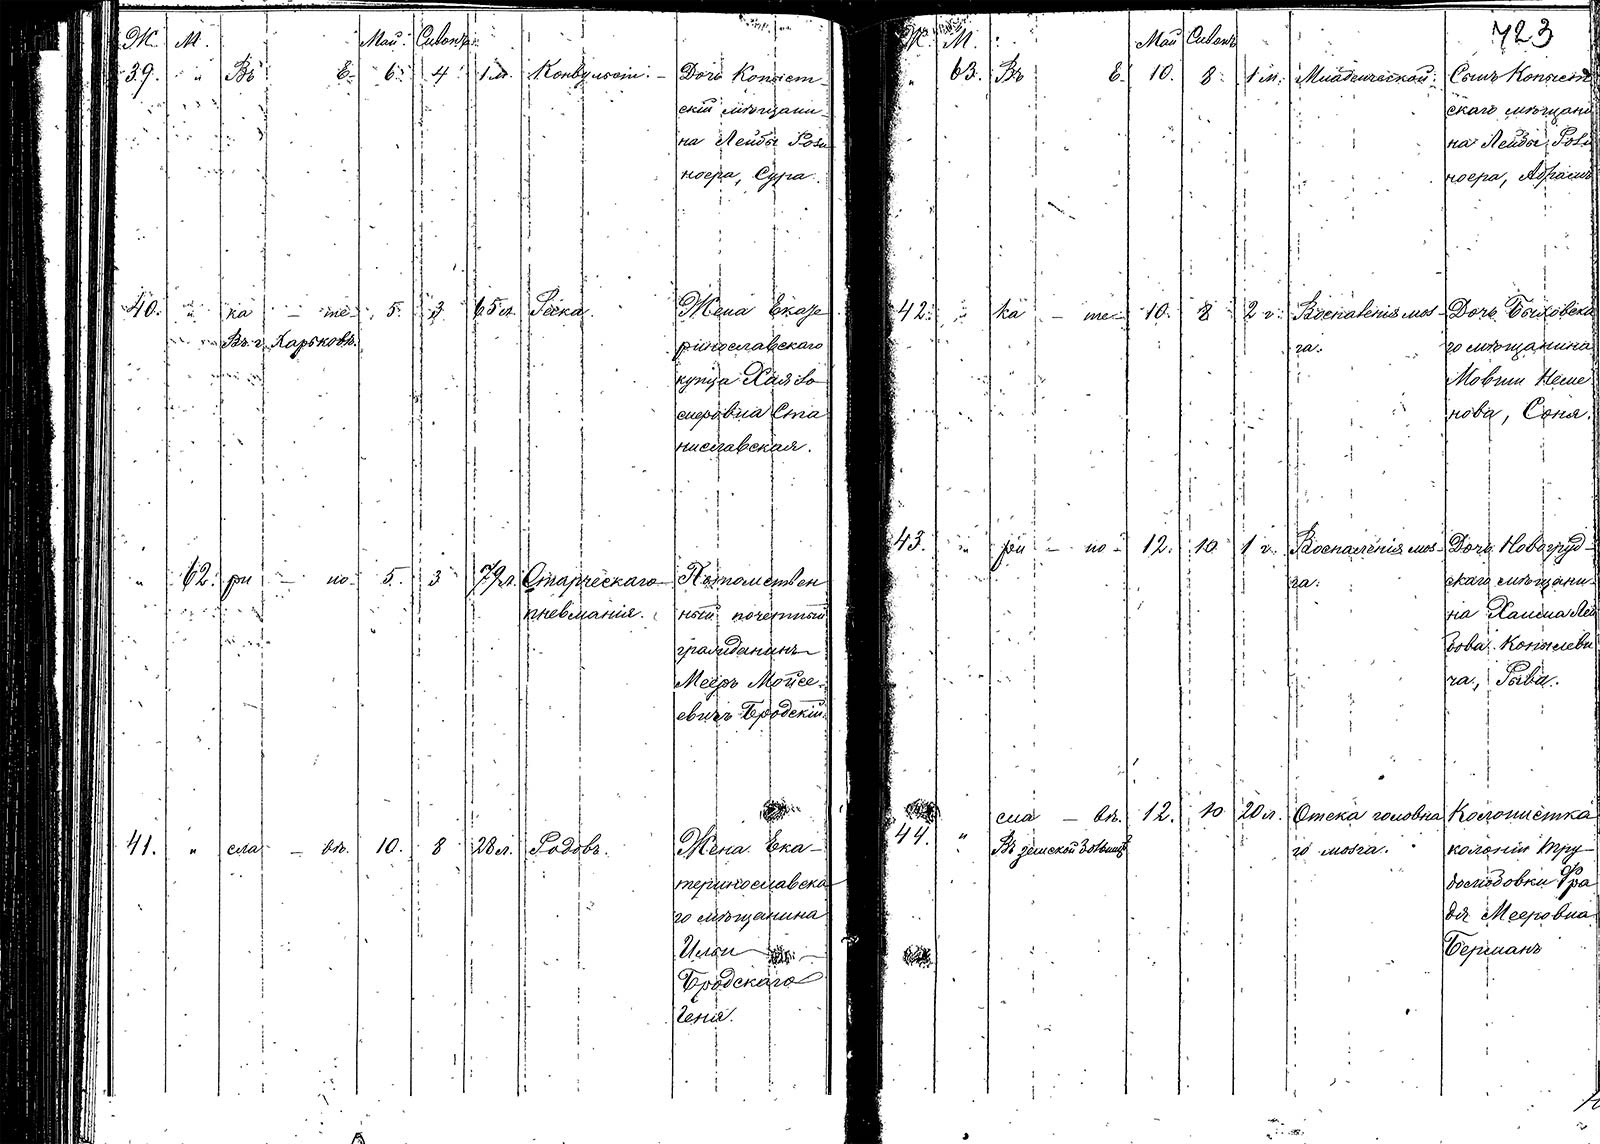 Ж. М. Май. Сиванъ.
39. " Въ Е- 6. 4 1 м. Конвульсіи. – Дочь Копыст-
скій мѣщани-
на Лейбы Рози-
ноера, Сура.
40. " ка – те- 5. 3 65 л. Рака. Жена Екате-
Въ г. Харьковѣ. ринославскаго
купца Хая
меровна Ста
ниславская.
" 62. ри – но- 5. 3 79 л. Старческаго Потомствен
пневманія. ный почетный
гражданинъ
Мееръ Мойсе-
евичъ Бродскій.
41. " сла – вѣ. 10. 8 28 л. Родовъ. Жена Ека-
теринославска
го мѣщанина
Ильи
Бродскаго
Геня.
723
Ж. М. Май Сиванъ
" 63. Въ Е- 10. 8 1 м. Младенческой. Сынъ Копыст
скаго мѣщани
на Лейбы Рози
ноера, Абрамъ
42. " ка – те- 10. 8 2 г. Воспаленія моз- Дочь Быховска
га. го мѣщанина
Мовши Неме
нова, Соня.
43. " ри – но- 12. 10 1 г. Воспаленія моз- Дочь Новогруд-
га. скаго мѣщани-
на Хаима Лей
бова Копылеви
ча, Рыва.
сла – вѣ. 12. 10 20 л. Отека головна Колонистка
44. " Въ земской больницѣ го мозга. колоніи Тру-
долюбовки Фра
дя Мееровна
Берманъ